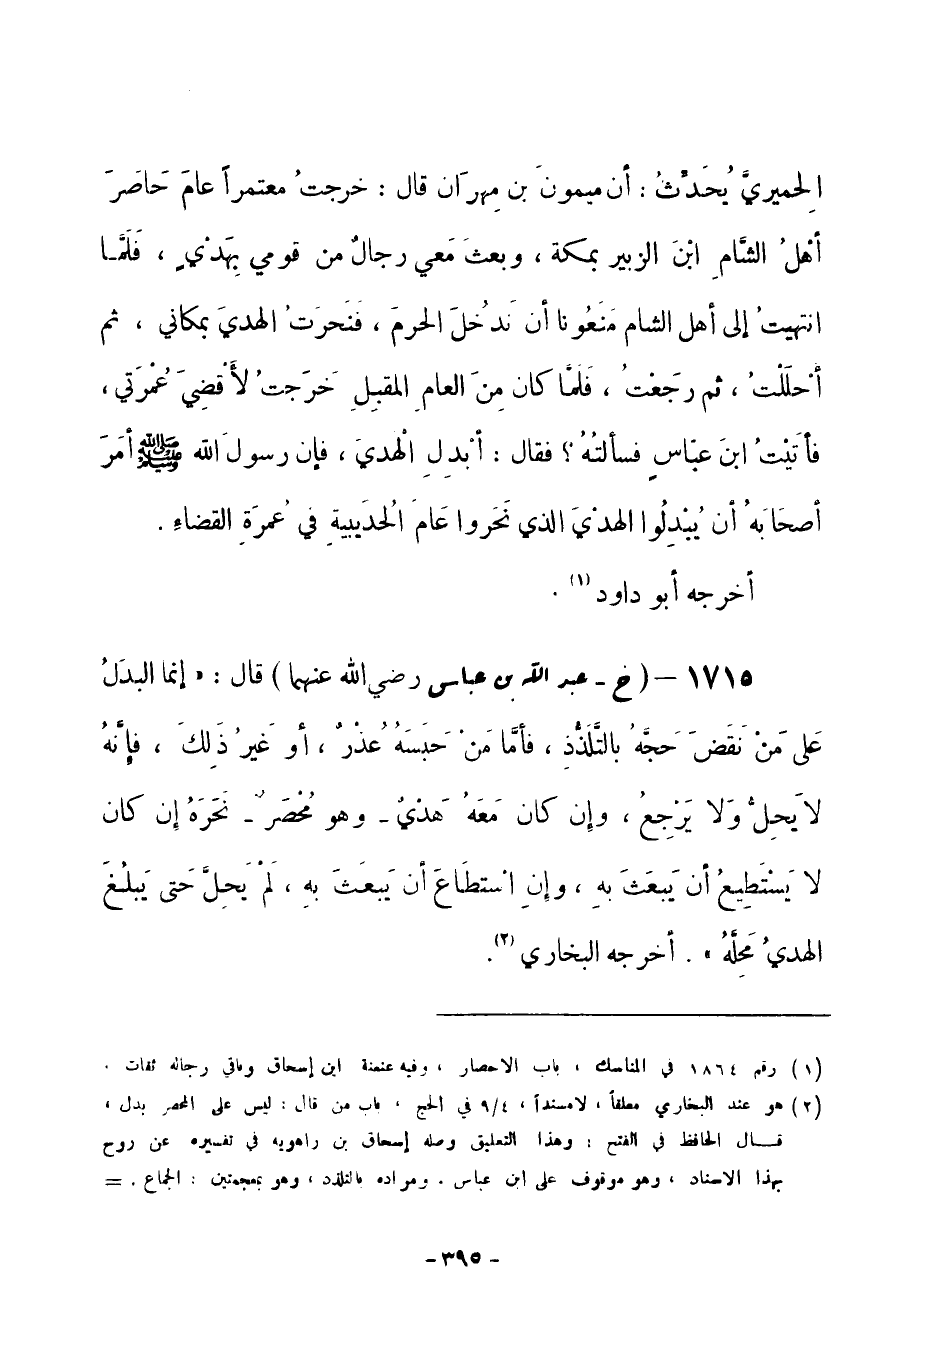 الحِميريَّ يُحَدِّثُ : أن ميمونَ بن مِهرَان قال : خرجتُ معتمراً عامَ حَاصَرَ
أهْلُ الشَّامِ ابْنَ الزبير بمكة ، وبعثَ مَعي رجالٌ من قومي بِهَدْيٍ ، فَلَمَّا
انتهيتُ إلى أهل الشام مَنَعُونا أن نَدخُلَ الحرمَ ، فَنَحرَتُ الهديَ بمكاني ، ثم
أَحْلَلْتُ ، ثم رجَعْتُ ، فَلمَّا كان مِنَ العامِ المقبِلِ خَرَجتُ لأَقضِيَ عُمْرَتي ،
فأتَيْتُ ابنَ عبّاسٍ فسألتُهُ ؟ فقال : أَبْدِلِ الْهَديَ ، فإن رسولَ الله ﷺ أمَرَ
أصحَابَهُ أن يُبْدِلُوا الهدْيَ الذي نَحَروا عَامَ الْحُدَيبيةِ في عُمرَةِ القضاءِ .
أخرجه أبو داود (١) .
١٧١٥ – ( خ - عبد الله بن عباس رضي الله عنهما ) قال : « إنما البدَلُ
عَلى مَنْ نَقَضَ حَجَّهُ بالتَّلَذُّذِ ، فأمَّا مَنْ حَبَسَهُ عُذْرٌ ، أو غَيرُ ذَلِكَ ، فإنَّهُ
لا يَحِلُّ وَلا يَرْجِعُ ، وإن كان مَعَهُ هَدْيٌ - وهو مُحْصَرٌ - نَحَرَهُ إن كان
لا يَسْتَطِيعُ أن يَبعَثَ بهِ ، وإنِ اسْتطَاعَ أن يَبعَثَ بهِ ، لَمْ يَحِلَّ حَتى يَبلُغَ
الهديُ مَحِلَّهُ » . أخرجه البخاري (٢) .
(١) رقم ١٨٦٤ في المناسك ، باب الاحصار ، وفيه عنعنة ابن إسحاق وباقي رجاله ثقات .
(٢) هو عند البخاري معلقاً ، لامسنداً ، ٩/٤ في الحج ، باب من قال : ليس على المحصر بدل ،
قــال الحافظ في الفتح : وهذا التعليق وصله إسحاق بن راهويه في تفسيره عن روح
بهذا الاسناد ، وهو موقوف على ابن عباس . ومراده بالتلذذ ، وهو بمعجمتين : الجماع . =
- ٣٩٥ -